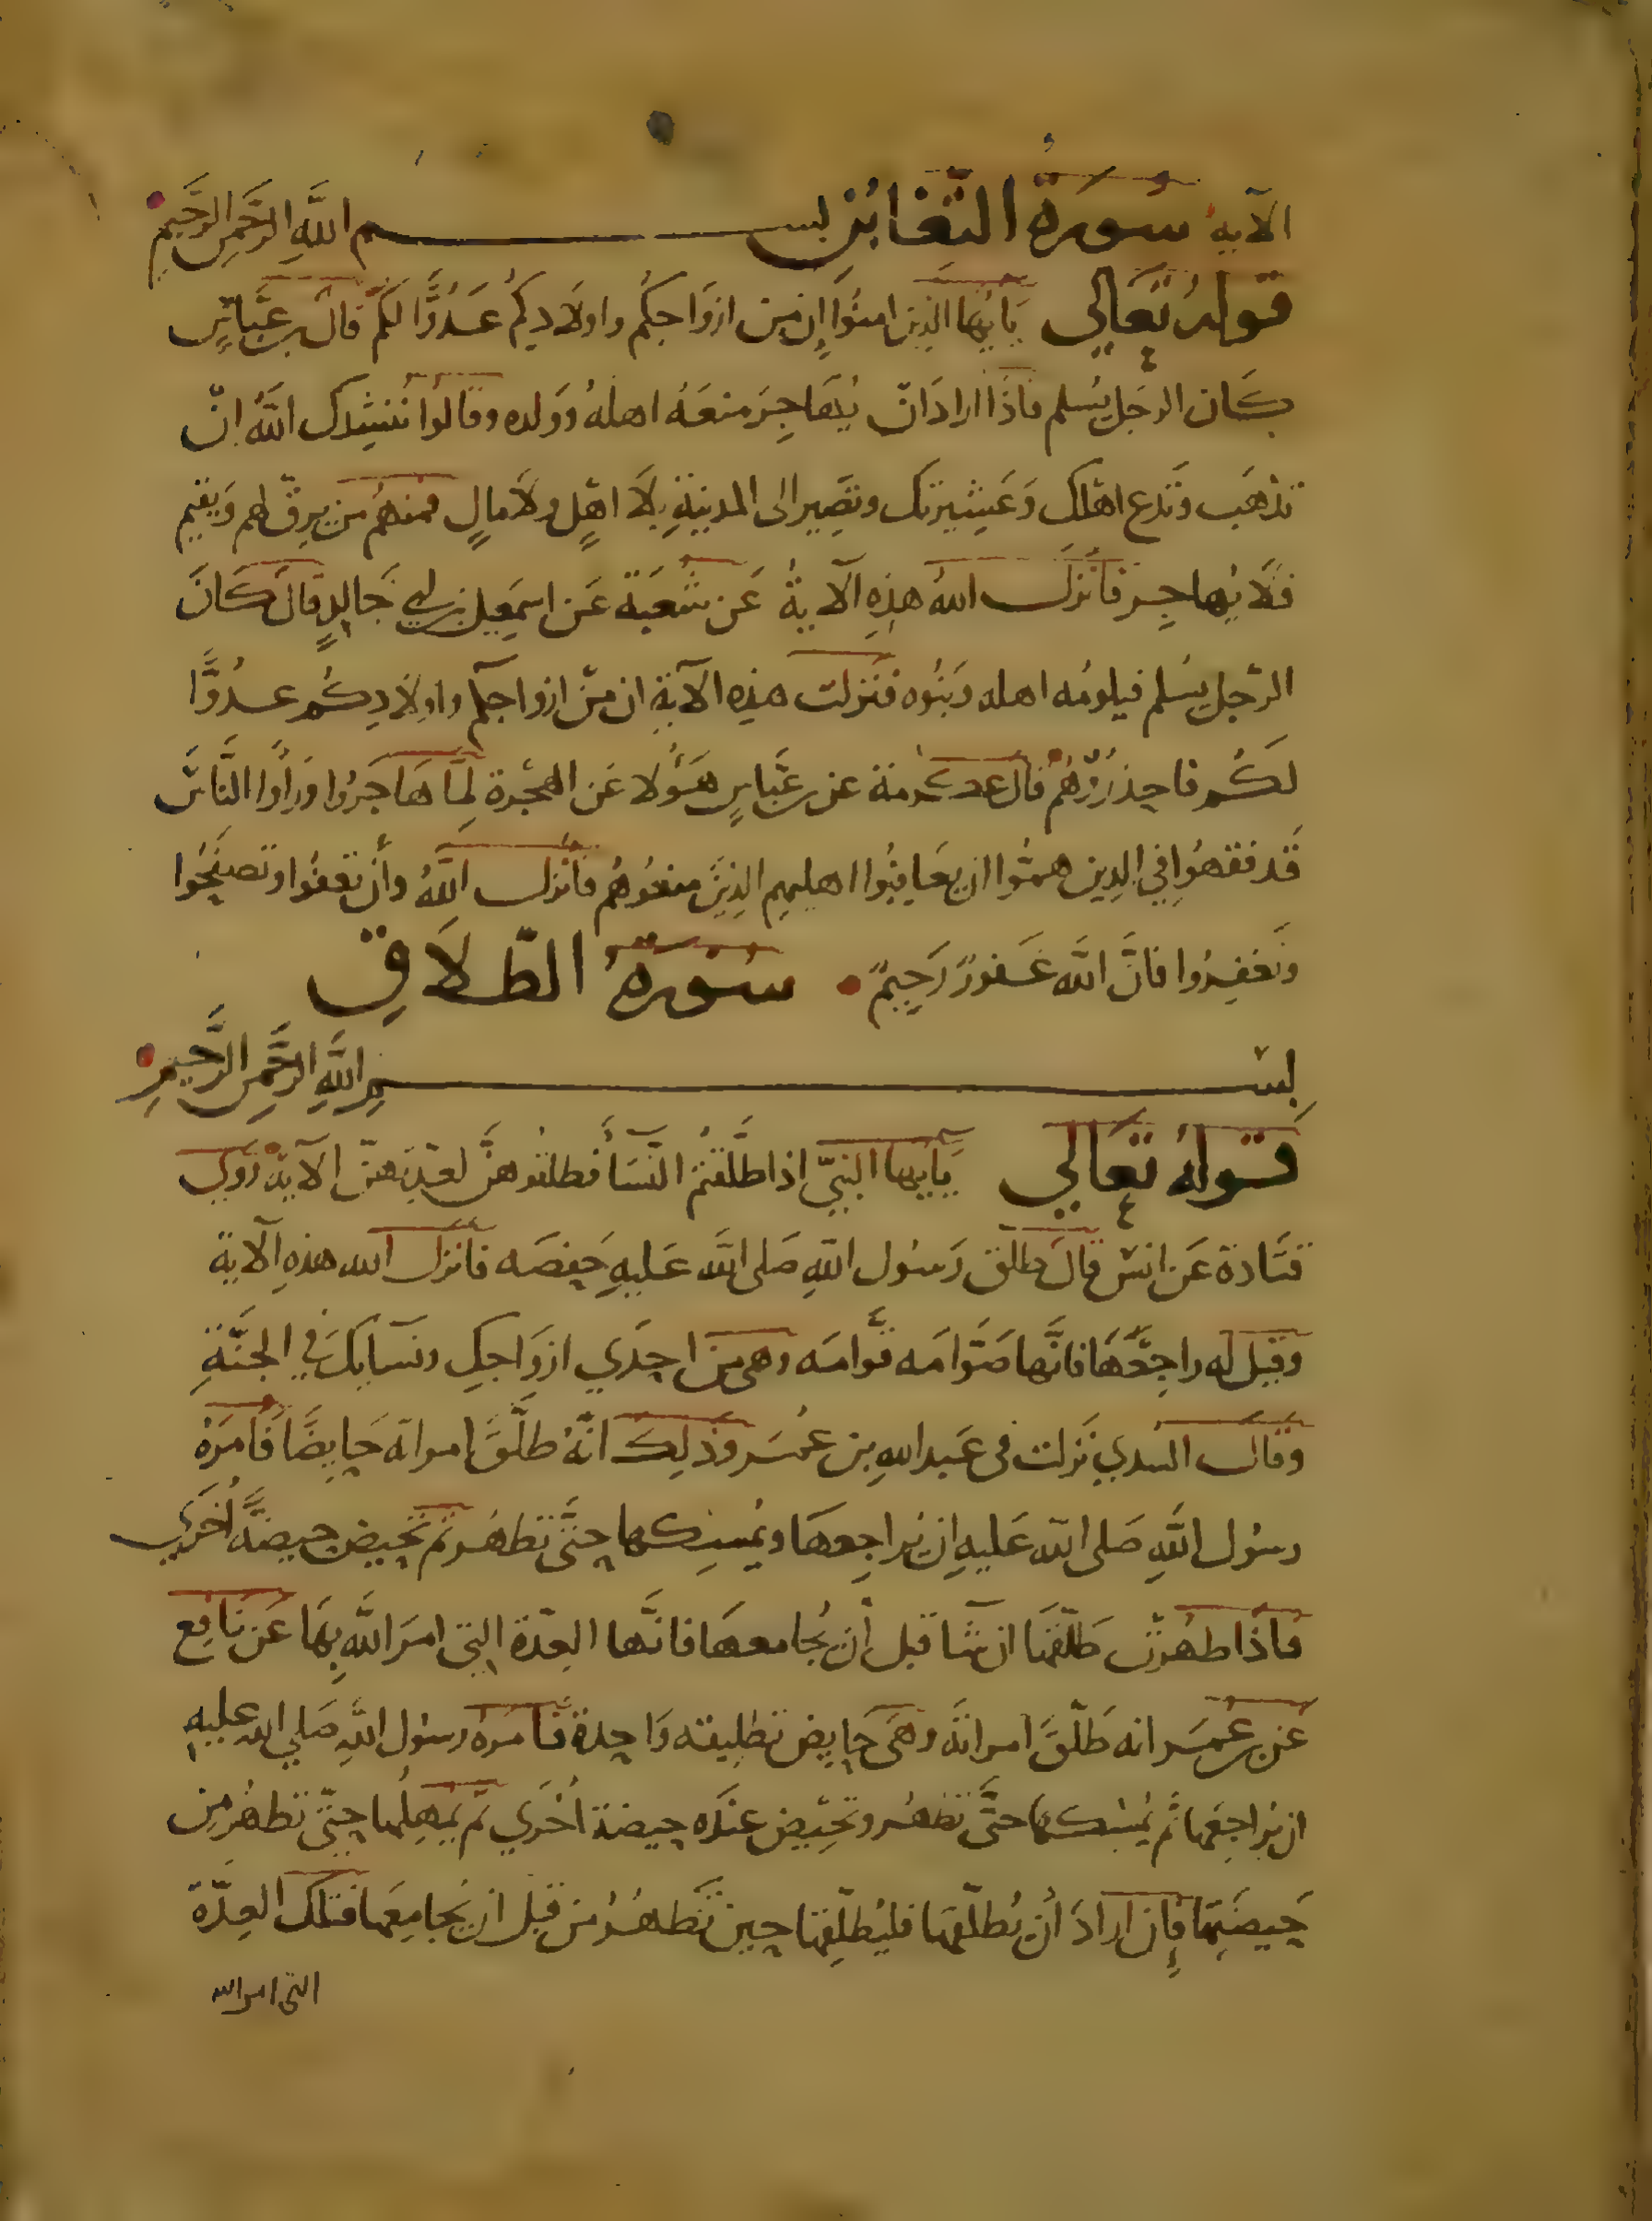 الآية سُورَةُ التَّغَابُنِ بسم اللَّهِ الرَّحْمَنِ الرَّحِيمِ
قوله تَعَالَى يَايُّهَا الذِين امنُوا إن مِن ازوَاجِكُم واولادِكُم عَدُوًّا لَكُمْ قالَ بن عَبَّاسٍ
كَان الرجل يُسلم فاذا ارادَ ان يُهَاجِرَ منعَهُ اهلهُ ووَلده وقالوا ننشِدك اللهَ ان
تذهَب وَتَدع اهْلك وَعَشِيرتك وتصِير الى المدينةِ بِلاَ اهْلٍ ولاَ مالٍ فمنهُم من يرِقّ لهم وَيقيم
فلَا يُهاجِر فأنزل اللهُ هذِهِ الآية عَن شُعبَة عَن اسمَعِيل بن ابي خَالِدٍ قالَ كَانَ
الرّجل يسُلم فيلومُه اهله وبَنُوه فنَزلت هذِه الآية ان مِنْ ازواجكم واولادِكُم عدُوًّا
لكُم فاحذرُوهُم قال عكرمة عن بن عَبَّاسٍ هَؤُلا عَن الهجْرة لِمَّا هَاجَرُوا وَرأوا النَّاسَ
قَد فقهُوا فِي الدِين همُّوا ان يعَاقِبُوا اهليهم الذِينَ منعُوهُم فأنزل اللَّهُ وأن تعفُوا وتصفَحُوا
وتَغفِرُوا فانَّ اللَّه غَفورٌ رَحِيمٌ سُورَةُ الطّلاَقِ
بسم اللَّهِ الرَّحْمَنِ الرَّحِيمِ
قوله تَعَالَى يَأيها النبيّ اذا طلَّقتُم النّسَأ فطلقُوهنَّ لعدتهنّ الآية رَوى
قتَادة عَن انسْ قالَ طلق رَسُول اللهِ صَلى اللَّه عَليهِ حَفصَه فأنزل الله هذهِ الآية
وقيل له راجِعْهَا فانَّها صَوَّامَه قوَّامَه وهى مِن احدَى ازوَاجِكِ ونسَايكَ فِي الجنَّةِ
وقال السُدي نَزلت فى عَبد اللهِ بن عُمَر وذلِك انّهُ طلَّقَ امراته حَايِضًا فأمَرهُ
رسُول اللَّهِ صَلى الله عَليهِ ان يُراجِعهَا ويُمسِكها حتَّى تطهُر ثم تحِيض حيضةً أُخرَى
فاذَا طهُرت طلّقهَا ان شَا قبل أن يُجامعهَا فانَّها العِدّة التِي امرَ اللَّه بِهَا عَن نَافِع
عَن بن عُمَر انه طَلّقَ امراته وهىَ حَايِض تطلِيقه وَاحِدة فأمَرهُ رسُول اللَّهِ صَلي الله عليهِ
ان يُراجِعَها ثُم يُمْسِكها حتَّى تطهُر وتحِيض عندَه حيضة أُخْرَي ثم يُمهِلُها حتّى تطهُر مِن
حَيضَتِها فإن ارادَ أن يُطلّقهَا فليُطلّقِها حِين تَطهُرُ مِن قبل ان يُجامِعَها فتلك العِدّة
التى امر الله